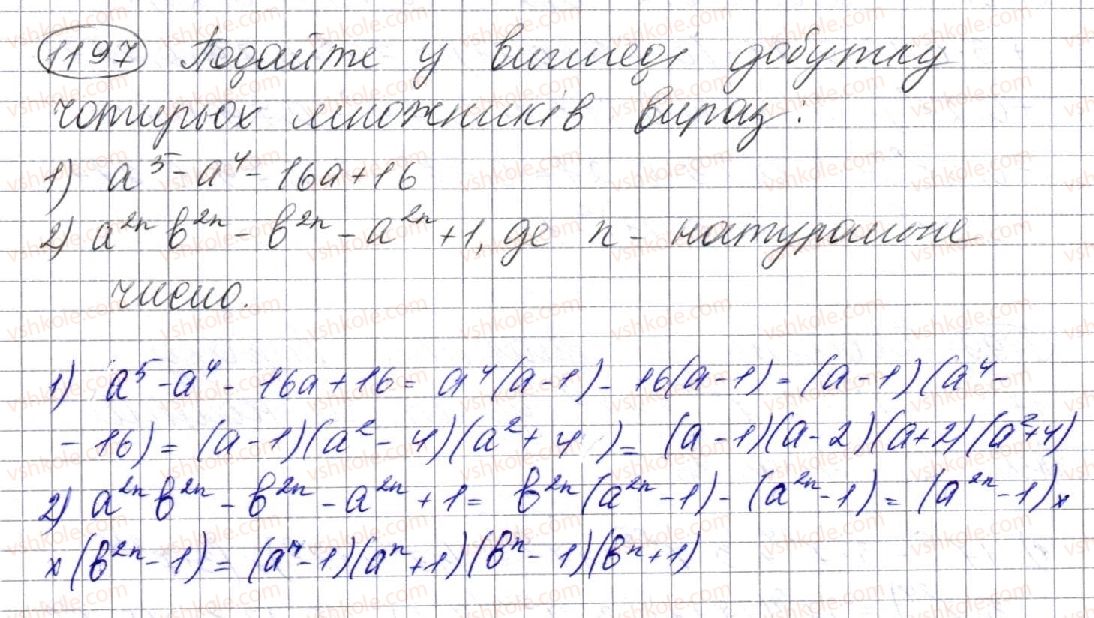 1197 Подайте у вигляді добутку
чотирьох множників вираз:
1) a⁵ - a⁴ - 16a + 16
2) a²ⁿ b²ⁿ - b²ⁿ - a²ⁿ + 1, де n - натуральне
число.
1) a⁵ - a⁴ - 16a + 16 = a⁴(a - 1) - 16(a - 1) = (a - 1)(a⁴ -
- 16) = (a - 1)(a² - 4)(a² + 4) = (a - 1)(a - 2)(a + 2)(a² + 4)
2) a²ⁿ b²ⁿ - b²ⁿ - a²ⁿ + 1 = b²ⁿ(a²ⁿ - 1) - (a²ⁿ - 1) = (a²ⁿ - 1) ×
× (b²ⁿ - 1) = (aⁿ - 1)(aⁿ + 1)(bⁿ - 1)(bⁿ + 1)